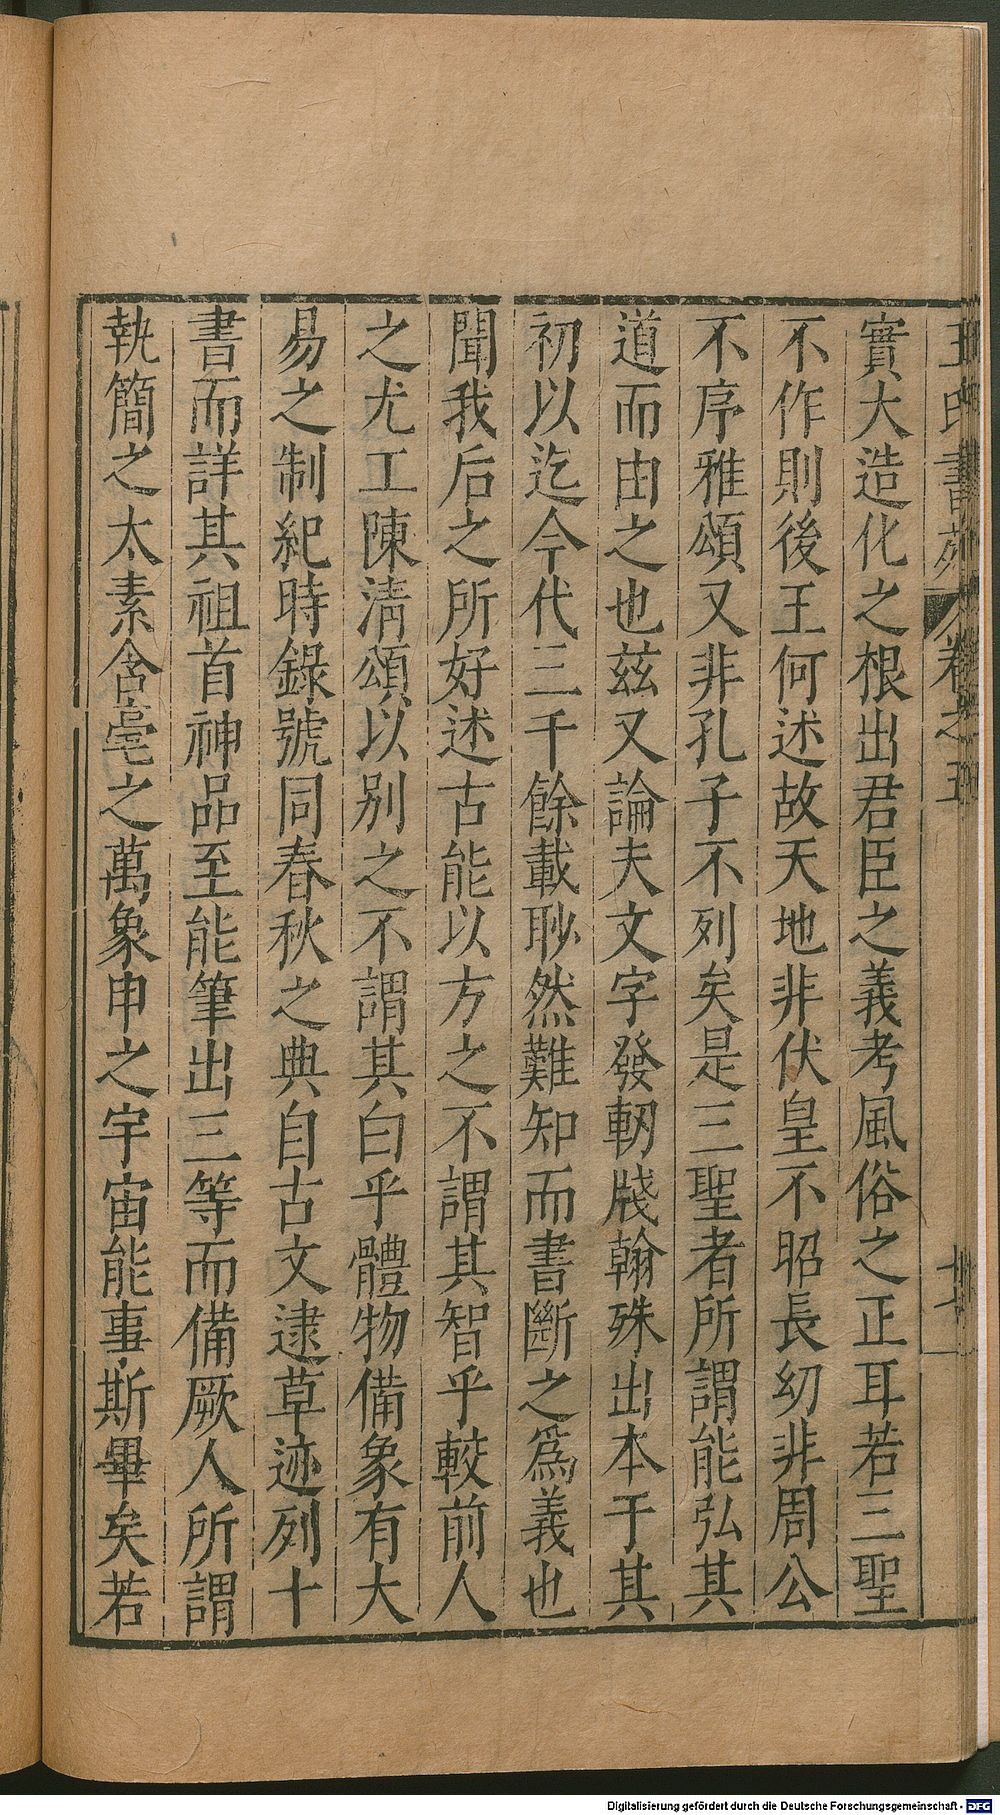 王氏書苑 卷之五
實大造化之根出君臣之義考風俗之正耳若三聖
不作則後王何述故天地非伏皇不昭長幼非周公
不序雅頌又非孔子不列矣是三聖者所謂能弘其
道而由之也茲又論夫文字發軔牋翰殊出本于其
初以迄今代三千餘載眇然難知而書斷之爲義也
聞我后之所好述古能以方之不謂其智乎較前人
之尤工陳清頌以别之不謂其白乎體物備象有大
易之制紀時錄號同春秋之典自古文逮草迹列十
書而詳其祖首神品至能筆出三等而備厥人所謂
執簡之太素含毫之萬象申之宇宙能事斯畢矣若
Digitalisierung gefördert durch die Deutsche Forschungsgemeinschaft - DFG